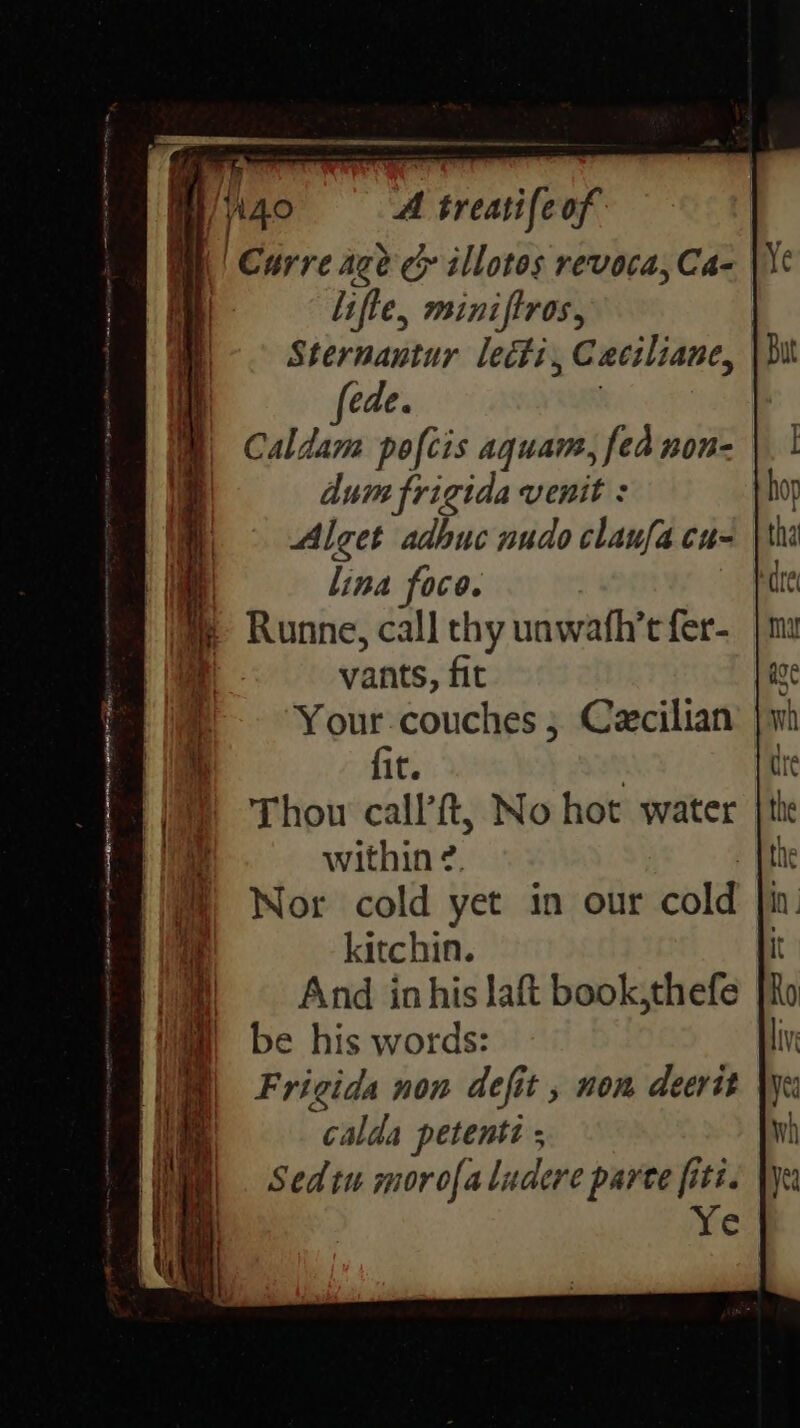 140 A treatiſe of
Curre agè & illotos revoca, Ca-
liſte, miniſtros,
Sternantur lecti, Cæciliane,
ſede.
Caldam poſcis aquam, ſed non-
dum frigida venit :
Alget adhuc nudo clauſa cu-
lina foco.
Runne, call thy unwaſh't ſer-
vants, fit
Your couches, Cæcilian
ſit.
Thou call'ſt, No hot water
within ?
Nor cold yet in our cold
kitchin.
And in his laſt book, theſe
be his words:
Frigida non deſit, non deerit
calda petenti ;
Sed tu moroſa ludere parce ſiti.
Ye
Ye
But
hop
tha
dre
mar
age
wh
dre
the
the
in
it
Ro
live
yea
wh
yea